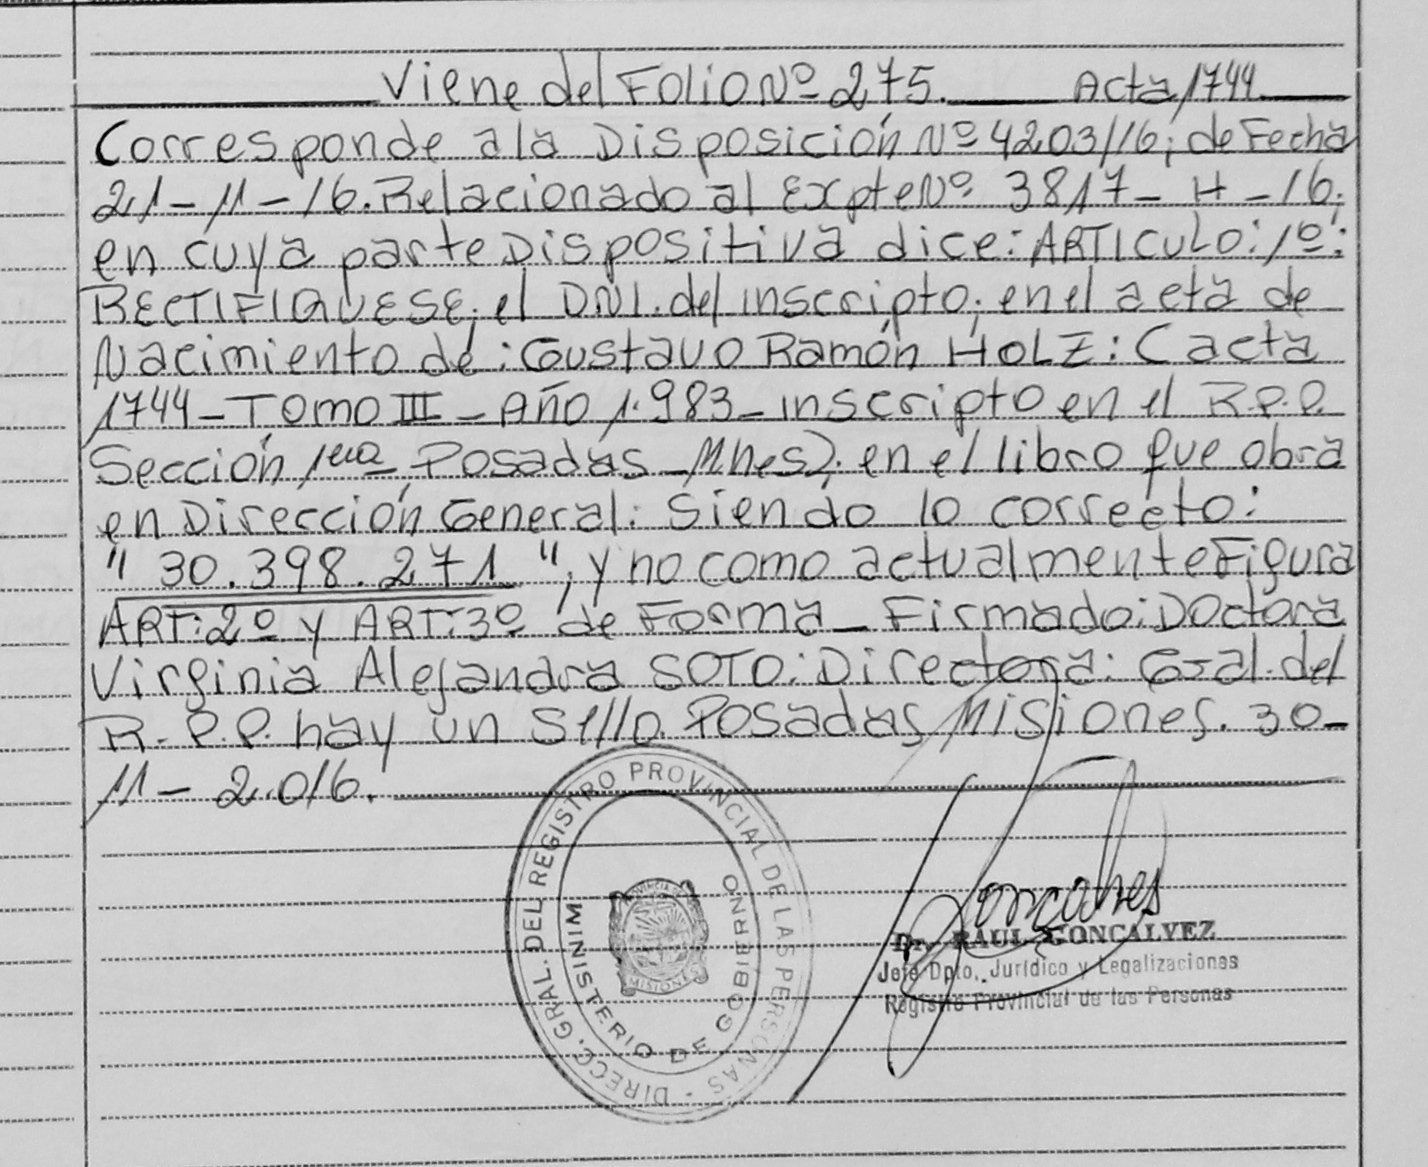 Viene del Folio Nº 275. Acta 1744
Corresponde a la Disposición Nº 4203/16; de Fecha
21-11-16. Relacionado al Expte Nº 3817-H-16;
en cuya parte Dispositiva dice: ARTICULO: 1º:
RECTIFIQUESE; el DNI. del inscripto; en el acta de
Nacimiento de: Gustavo Ramón HOLZ: (acta
1744-Tomo III-Año 1.983-inscripto en el R.P.P.
Sección 1era Posadas-Mnes); en el libro que obra
en Dirección General: Siendo lo correcto:
" 30.398.271 ", y no como actualmente Figura
ART: 2º y ART: 3º de Forma - Firmado: Doctora
Virginia Alejandra SOTO: Directora: Gral. del
R.P.P. hay un Sello. Posadas, Misiones. 30-
11-2.016.
DIRECC. GRAL. DEL REGISTRO PROVINCIAL DE LAS PERSONAS -
MINISTERIO DE GOBIERNO
PROVINCIA DE
MISIONES
Goncalves
Dr. RAUL GONCALVEZ
Jefe Dpto. Jurídico y Legalizaciones
Registro Provincial de las Personas